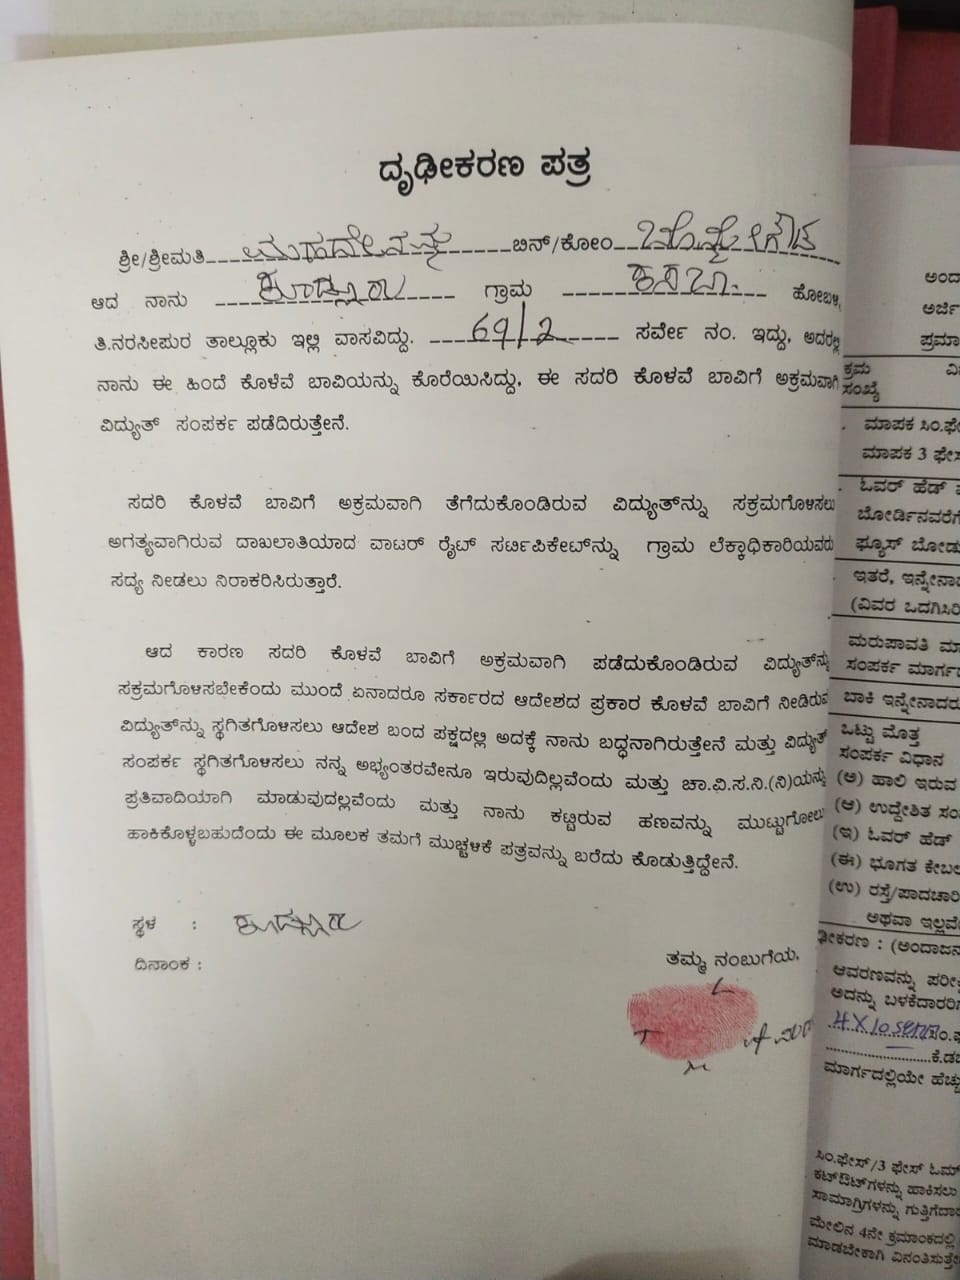 ದೃಢೀಕರಣ ಪತ್ರ
ಶ್ರೀ/ಶ್ರೀಮತಿ ಮಹದೇವಮ್ಮ ಬಿನ್/ಕೋಂ
ಆದ ನಾನು ಕೂಡ್ಲೂರು ಗ್ರಾಮ ಕಸಬಾ ಹೋಬಳಿ,
ತಿ.ನರಸೀಪುರ ತಾಲ್ಲೂಕು ಇಲ್ಲಿ ವಾಸವಿದ್ದು. 69/2 ಸರ್ವೇ ನಂ. ಇದ್ದು, ಅದರಲ್ಲಿ
ನಾನು ಈ ಹಿಂದೆ ಕೊಳೆವೆ ಬಾವಿಯನ್ನು ಕೊರೆಯಿಸಿದ್ದು, ಈ ಸದರಿ ಕೊಳವೆ ಬಾವಿಗೆ ಅಕ್ರಮವಾಗಿ
ವಿದ್ಯುತ್ ಸಂಪರ್ಕ ಪಡೆದಿರುತ್ತೇನೆ.
ಸದರಿ ಕೊಳವೆ ಬಾವಿಗೆ ಅಕ್ರಮವಾಗಿ ತೆಗೆದುಕೊಂಡಿರುವ ವಿದ್ಯುತ್‌ನ್ನು ಸಕ್ರಮಗೊಳಿಸಲು
ಅಗತ್ಯವಾಗಿರುವ ದಾಖಲಾತಿಯಾದ ವಾಟರ್ ರೈಟ್ ಸರ್ಟಿಪಿಕೇಟ್‌ನ್ನು ಗ್ರಾಮ ಲೆಕ್ಕಾಧಿಕಾರಿಯವರು
ಸದ್ಯ ನೀಡಲು ನಿರಾಕರಿಸಿರುತ್ತಾರೆ.
ಆದ ಕಾರಣ ಸದರಿ ಕೊಳವೆ ಬಾವಿಗೆ ಅಕ್ರಮವಾಗಿ ಪಡೆದುಕೊಂಡಿರುವ ವಿದ್ಯುತ್‌ನ್ನು
ಸಕ್ರಮಗೊಳಿಸಬೇಕೆಂದು ಮುಂದೆ ಏನಾದರೂ ಸರ್ಕಾರದ ಆದೇಶದ ಪ್ರಕಾರ ಕೊಳವೆ ಬಾವಿಗೆ ನೀಡಿರುವ
ವಿದ್ಯುತ್‌ನ್ನು ಸ್ಥಗಿತಗೊಳಿಸಲು ಆದೇಶ ಬಂದ ಪಕ್ಷದಲ್ಲಿ ಅದಕ್ಕೆ ನಾನು ಬದ್ಧನಾಗಿರುತ್ತೇನೆ ಮತ್ತು ವಿದ್ಯುತ್
ಸಂಪರ್ಕ ಸ್ಥಗಿತಗೊಳಿಸಲು ನನ್ನ ಅಭ್ಯಂತರವೇನೂ ಇರುವುದಿಲ್ಲವೆಂದು ಮತ್ತು ಚಾ.ವಿ.ಸ.ನಿ.(ನಿ)ಯನ್ನು
ಪ್ರತಿವಾದಿಯಾಗಿ ಮಾಡುವುದಲ್ಲವೆಂದು ಮತ್ತು ನಾನು ಕಟ್ಟಿರುವ ಹಣವನ್ನು ಮುಟ್ಟುಗೋಲು
ಹಾಕಿಕೊಳ್ಳಬಹುದೆಂದು ಈ ಮೂಲಕ ತಮಗೆ ಮುಚ್ಚಳಿಕೆ ಪತ್ರವನ್ನು ಬರೆದು ಕೊಡುತ್ತಿದ್ದೇನೆ.
ಸ್ಥಳ : ಕೂಡ್ಲೂರು
ದಿನಾಂಕ :
ತಮ್ಮ ನಂಬುಗೆಯ,
ಕ್ರಮ
ಸಂಖ್ಯೆ
ಮಾಪಕ ಸಿಂ.ಫೇ
ಮಾಪಕ 3 ಫೇಸ್
ಓವರ್ ಹೆಡ್
ಬೋರ್ಡಿನವರೆಗೆ
ಫ್ಯೂಸ್ ಬೋರ್ಡು
ಇತರೆ, ಇನ್ನೇನಾ
(ವಿವರ ಒದಗಿಸಿರಿ
ಮರುಪಾವತಿ ಮಾ
ಸಂಪರ್ಕ ಮಾರ್ಗದ
ಬಾಕಿ ಇನ್ನೇನಾದರು
ಒಟ್ಟು ಮೊತ್ತ
ಸಂಪರ್ಕ ವಿಧಾನ
(ಅ) ಹಾಲಿ ಇರುವ
(ಆ) ಉದ್ದೇಶಿತ ಸಂ
(ಇ) ಓವರ್ ಹೆಡ್
(ಈ) ಭೂಗತ ಕೇಬಲ
(ಉ) ರಸ್ತೆ/ಪಾದಚಾರಿ
ಅಥವಾ ಇಲ್ಲವೆ
ಢೀಕರಣ : (ಅಂದಾಜನ
ಆವರಣವನ್ನು ಪರೀಕ್ಷ
ಅದನ್ನು ಬಳಕೆದಾರರಿಗ
ಕೆ.ಡಬ
ಮಾರ್ಗದಲ್ಲಿಯೇ ಹೆಚ್ಚು
ಸಿಂ.ಫೇಸ್/3 ಫೇಸ್ ಓಮ್
ಕಟ್‌ಔಟ್‌ಗಳನ್ನು ಹಾಕಿಸಲು
ಸಾಮಾಗ್ರಿಗಳನ್ನು ಗುತ್ತಿಗೆದಾ
ಮೇಲಿನ 4ನೇ ಕ್ರಮಾಂಕದಲ್ಲಿ
ಮಾಡಬೇಕಾಗಿ ವಿನಂತಿಸುತ್ತೇ